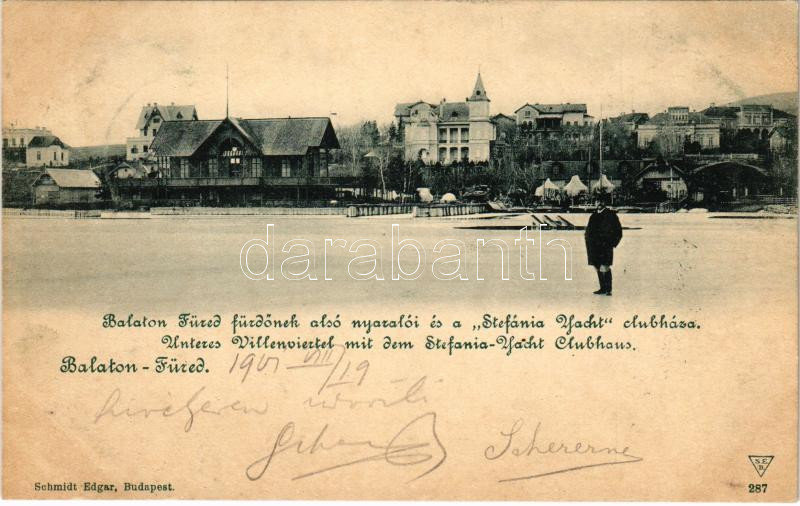 darabanth
Balaton Füred fürdőnek alsó nyaralói és a „Stefánia Yacht" clubháza.
Unteres Villenviertel mit dem Stefania-Yacht Clubhaus.
Balaton-Füred. 1901 VIII/19
Schererné
Schmidt Edgar, Budapest.
S.E.
B.
287